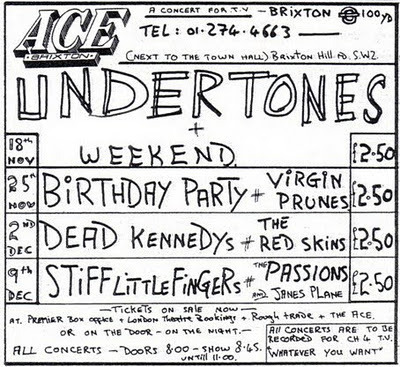 ACE
BRIXTON
A CONCERT FOR T.V – BRIXTON 100 YD
TEL: 01·274·4663
(NEXT TO THE TOWN HALL) BRIXTON HILL RD. S.W2.
UNDERTONES
+
18th NOV WEEKEND £2·50
25th NOV BIRTHDAY PARTY + VIRGIN PRUNES £2·50
2nd DEC DEAD KENNEDYs + THE RED SKINS £2·50
9th DEC STIFF LITTLE FINGERs + THE PASSIONS AND JANES PLANE £2·50
—TICKETS ON SALE NOW—
AT. PREMIER BOX OFFICE + LONDON THEATRE BOOKINGS + ROUGH TRADE + THE ACE.
OR ON THE DOOR – ON THE NIGHT.—
ALL CONCERTS – DOORS 8:00 – SHOW 8·45.
UNTILL 11·00.
ALL CONCERTS ARE TO BE
RECORDED FOR CH 4 T.V.
"WHATEVER YOU WANT"